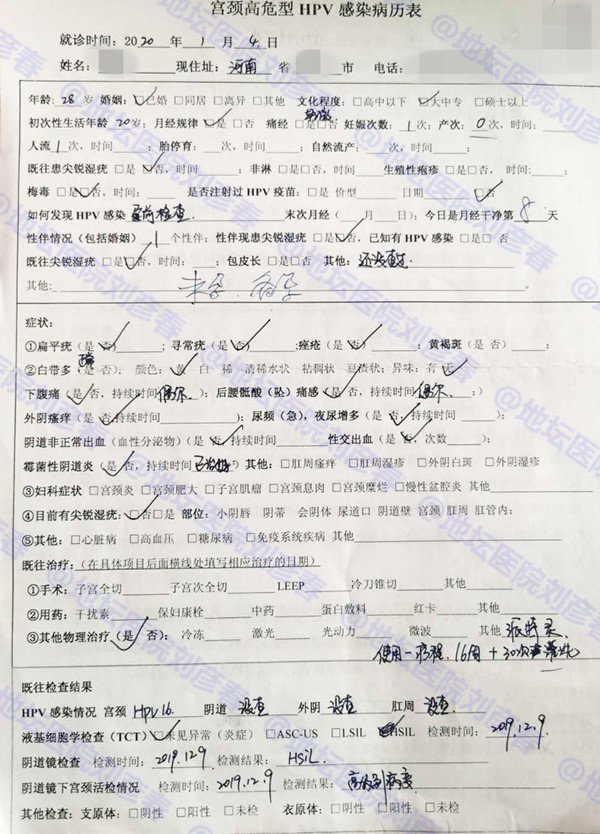 宫颈高危型 HPV 感染病历表
就诊时间：2020 年 1 月 4 日
姓名： 现住址：河南 省 市 电话：
年龄：28 岁 婚姻：☑已婚 □同居 □离异 □其他 文化程度：□高中以下 ☑大中专 □硕士以上
初次性生活年龄 20 岁；月经规律 ☑是 □否 痛经 □是□否 妊娠次数：1 次；产次：0 次，时间：
人流 1 次，时间： ；胎停育： 次，时间： ；自然流产： 次，时间：
既往患尖锐湿疣 □是 ☑否，时间： 非淋 □是□否，时间： 生殖性疱疹 □是□否， 时间：
梅毒 □是☑否，时间： 是否注射过 HPV 疫苗：□是 价型 日期 ☑否
如何发现 HPV 感染 检查 末次月经（ 月 日）；今日是月经干净第 8 天
性伴情况（包括婚姻） 1 个性伴；性伴现患尖锐湿疣 □是☑否，已知有 HPV 感染 □是□ 否
既往尖锐湿疣 □是☑否，时间： ；包皮长 □是□否 其他：还没查
其他： 未孕、备孕
症状：
①扁平疣（是 否） ；寻常疣（是 否） ；痤疮（是 否） ；黄褐斑（是 否）
②白带多（是 否）； 颜色：黄 白 稀 清稀水状 粘稠状 豆渣状；异味：有 无
下腹痛（是 否，持续时间偶尔 ）；后腰骶酸（坠）痛感（是 否，持续时间偶尔 ；）
外阴瘙痒（是 否，持续时间 ）；尿频（急），夜尿增多（是 否，持续时间 ；）
阴道非正常出血（血性分泌物）（是 否，持续时间 性交出血（是 否，次数 ）；
霉菌性阴道炎（是 否，持续时间 已治好）其他：□肛周瘙痒 □肛周湿疹 □外阴白斑 □外阴湿疹
③妇科症状 □宫颈炎 □宫颈肥大 □子宫肌瘤 □宫颈息肉 □宫颈糜烂 □慢性盆腔炎 其他
④目前有尖锐湿疣：☑否□是 部位：小阴唇 阴蒂 会阴体 尿道口 阴道壁 宫颈 肛周 肛管内：
⑤其他：□心脏病 □高血压 □糖尿病 □免疫系统疾病 其他
既往治疗：（在具体项目后面横线处填写相应治疗的日期）
①手术：子宫全切 子宫次全切 LEEP 冷刀锥切 其他
②用药：干扰素 保妇康栓 中药 蛋白敷料 红卡 其他
③其他物理治疗（是 否）：冷冻 激光 光动力 微波 其他 派特灵
使用一疗程、16周 + 30次
既往检查结果
HPV 感染情况 宫颈 Hpv16. 阴道 没查 外阴 没查 肛周 没查.
液基细胞学检查（TCT）☑未见异常（炎症） □ASC-US □LSIL HSIL 检测时间：2019.12.9
阴道镜检查 检测时间：2019.12.9 检测结果： HSIL
阴道镜下宫颈活检情况 检测时间：2019.12.9 检测结果：高级别病变
其他检查：支原体：□阴性 □阳性 □未检 衣原体：□阴性 □阳性 □未检
@地坛医院刘彦春